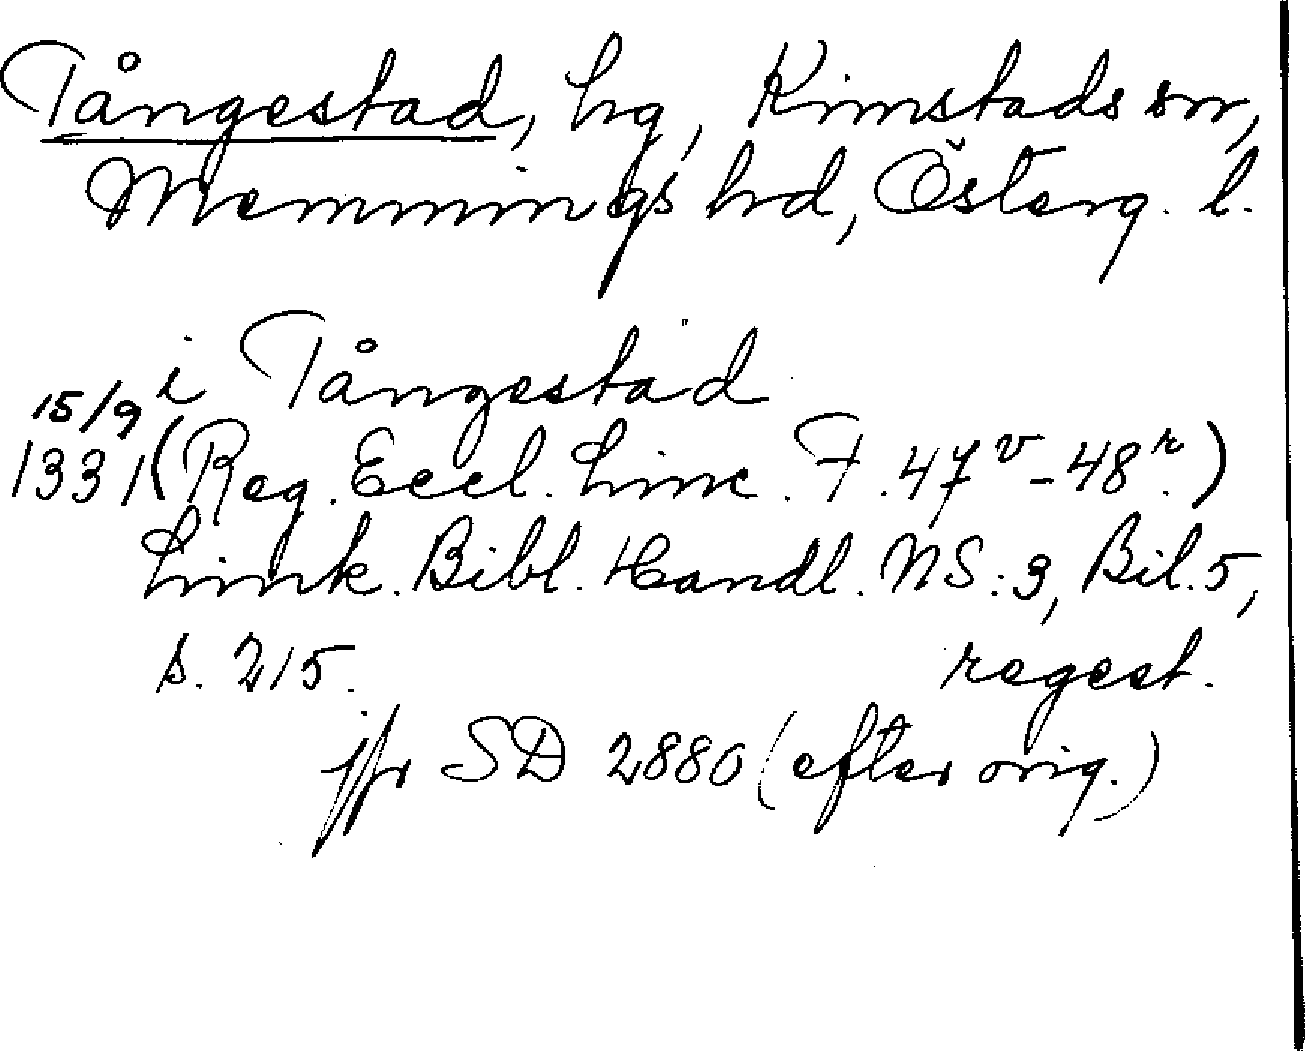 Tångestad, hg, Kimstads sn,
Memmings hd, Österg. l.
i Tångestad
15/9
1331 (Reg. Eccl. Linc. F. 47v-48r.)
Link. Bibl. Handl. NS: 3, Bil. 5,
s. 215. regest.
jfr SD 2880 (efter orig.)